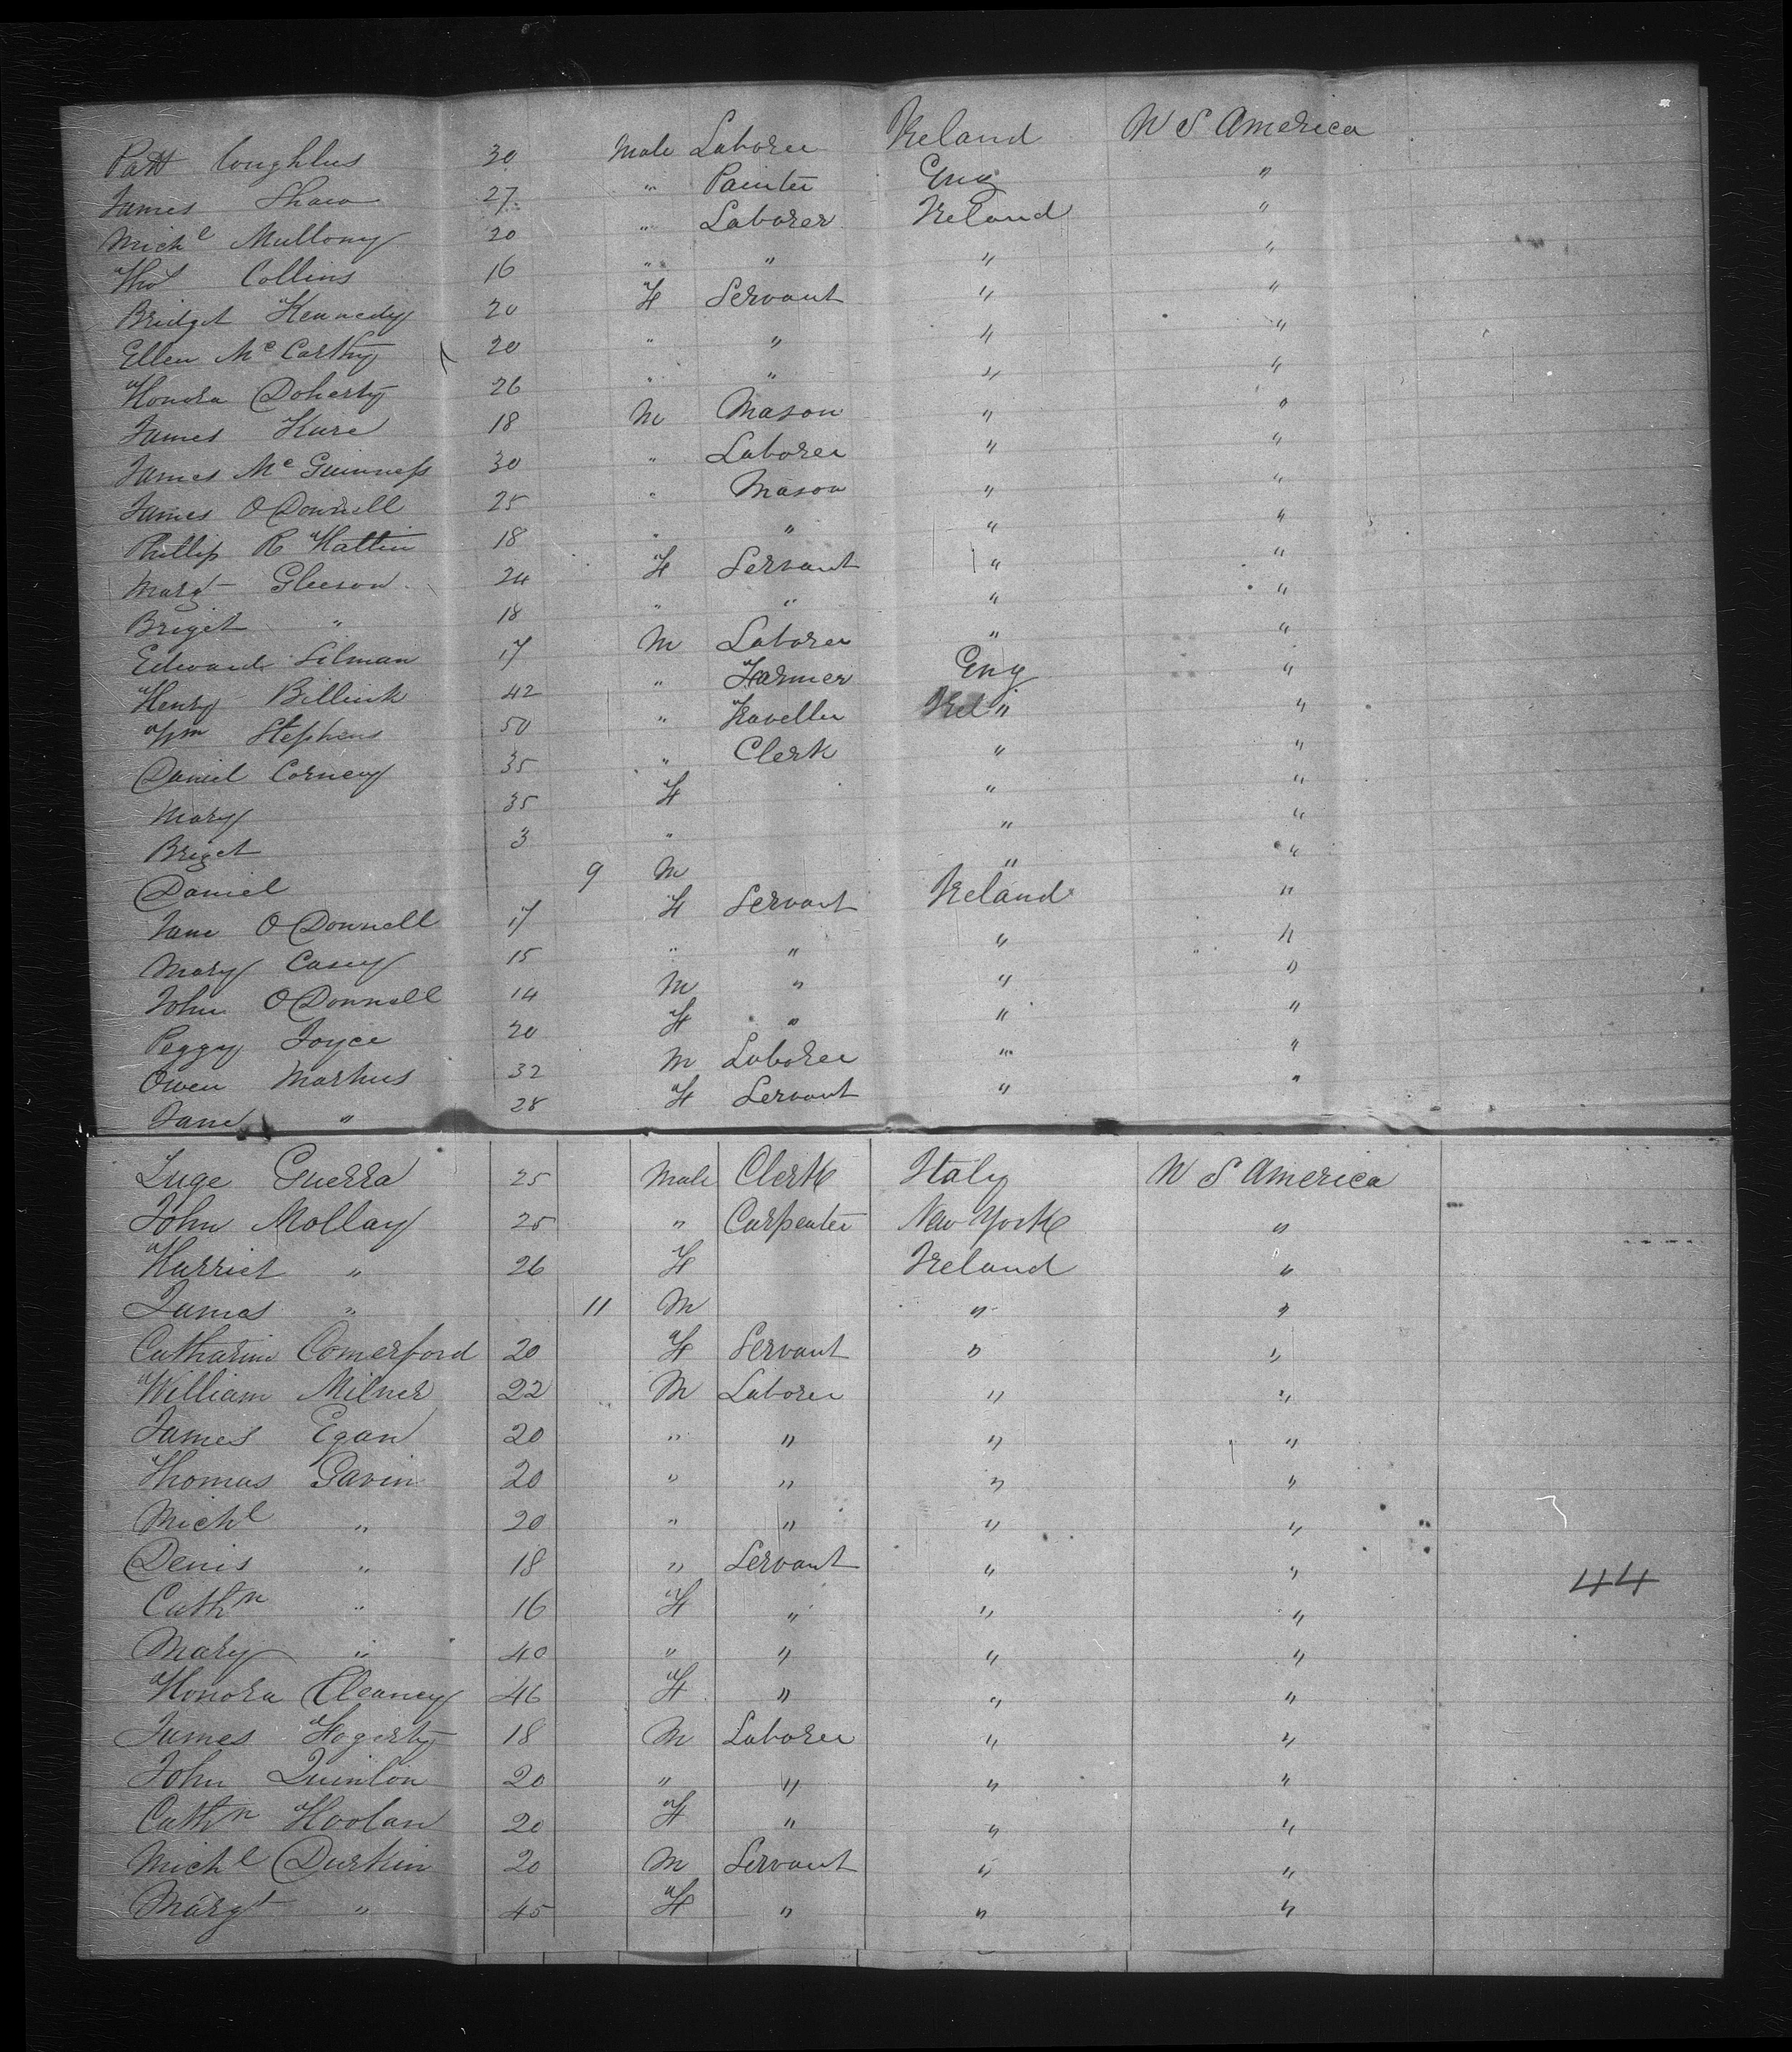 Patt Coughlus 30 Male Laborer Ireland U S America
James Shaw 27 " Painter Eng "
Michl Mullony 20 " Laborer Ireland "
Thos Collins 16 " " " "
Bridget Kennedy 20 F Servant " "
Ellen McCarthy 20 " " " "
Honora Doherty 26 " " " "
James Kure 18 M Mason " "
James McGuinness 30 " Laborer " "
James O Donnell 25 " Mason " "
Phillip R Hattin 18 " " " "
Margt Gleeson 24 F Servant " "
Briget " 18 " " " "
Edward Silman 17 M Laborer " "
Henry Billink 42 " Farmer Eng "
Wm Stephens 50 " Traveller Irel " "
Daniel Corney 35 " Clerk " "
Mary 35 F " "
Briget 3 " " "
Daniel 9 M " "
Jane O Donnell 17 F Servant Ireland "
Mary Casey 15 " " " "
John O Donnell 14 M " " "
Peggy Joyce 20 F " " "
Owen Markus 32 M Laborer " "
Jane " 28 F Servant " "
Luge Guerra 25 Male Clerk Italy U S America
John Mollay 25 " Carpenter New York "
Harriet " 26 F Ireland "
James " 11 M " "
Catharine Comerford 20 F Servant " "
William Milner 22 M Laborer " "
James Egan 20 " " " "
Thomas Gavin 20 " " " "
Michl " 20 " " " "
Denis " 18 " Servant " "
Cathn " 16 F " " "
Mary " 40 " " " "
Honora Cleaney 46 F " " "
James Hogerty 18 M Laborer " "
John Quinlon 20 " " " "
Cathn Hoolan 20 F " " "
Michl Durkin 20 M Servant " "
Margt " 45 F " " "
44